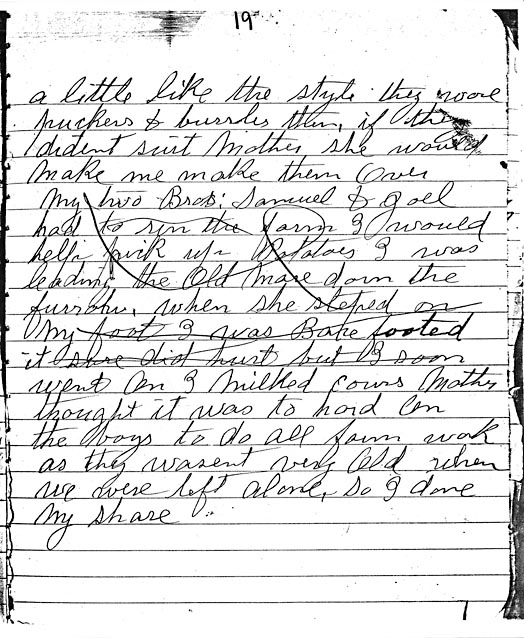 19
a little like the style they wore
puckers & bussles then, if they
dident suit Mother she would
make me make them Over
My two Bros: Samuel & Joel
had to run the farm I would
help pick up Potatoes I was
leading the Old Mare down the
furrow, when she steped on
My foot I was Bare footed
it sure did hurt but I soon
went on I Milked cows Mother
thought it was to hard on
the boys to do all farm work
as they wasent very Old when
we were left alone, so I done
My share